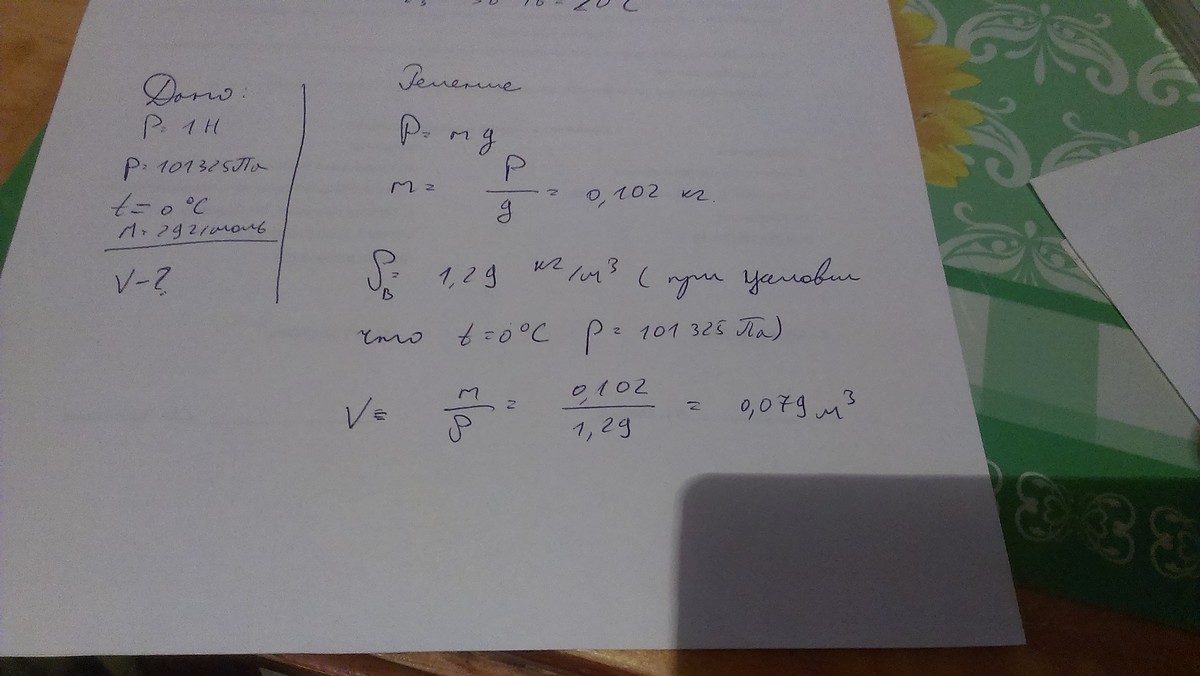 = 20 C
Дано:
P= 1 Н
P= 101325 Па
t= 0 °C
M= 29 г/моль
V-?
Решение
P= m g
m = P/g = 0,102 кг.
ρв= 1,29 кг/м³ ( при условии
что t=0°C p= 101 325 Па)
V= m/ρ = 0,102/1,29 = 0,079 м³